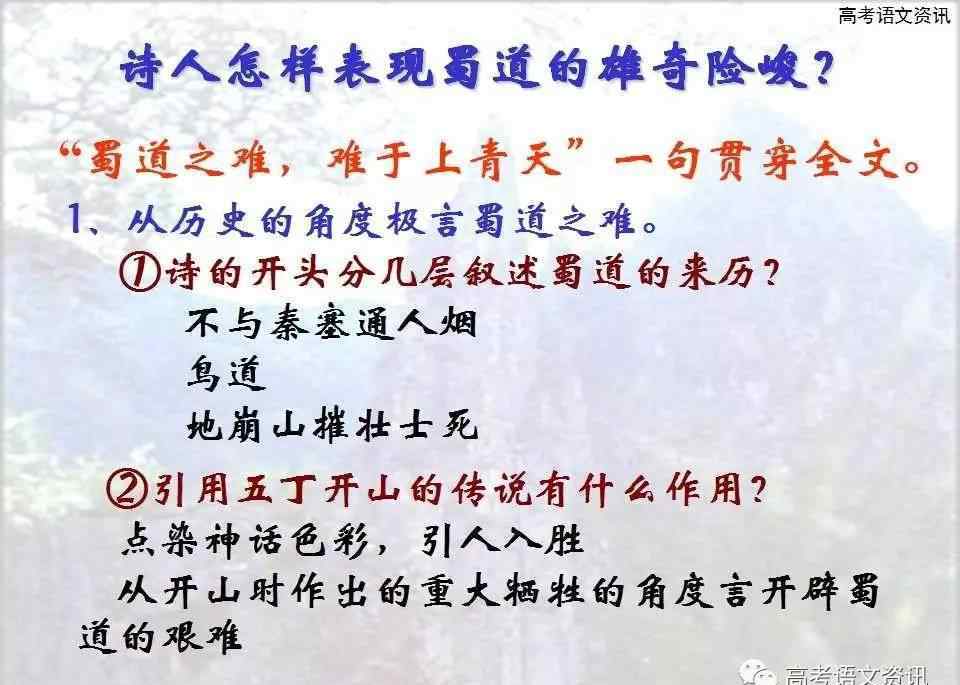 高考语文资讯
诗人怎样表现蜀道的雄奇险峻？
“蜀道之难，难于上青天”一句贯穿全文。
1、从历史的角度极言蜀道之难。
①诗的开头分几层叙述蜀道的来历？
不与秦塞通人烟
鸟道
地崩山摧壮士死
②引用五丁开山的传说有什么作用？
点染神话色彩，引人入胜
从开山时作出的重大牺牲的角度言开辟蜀
道的艰难
高考语文资讯